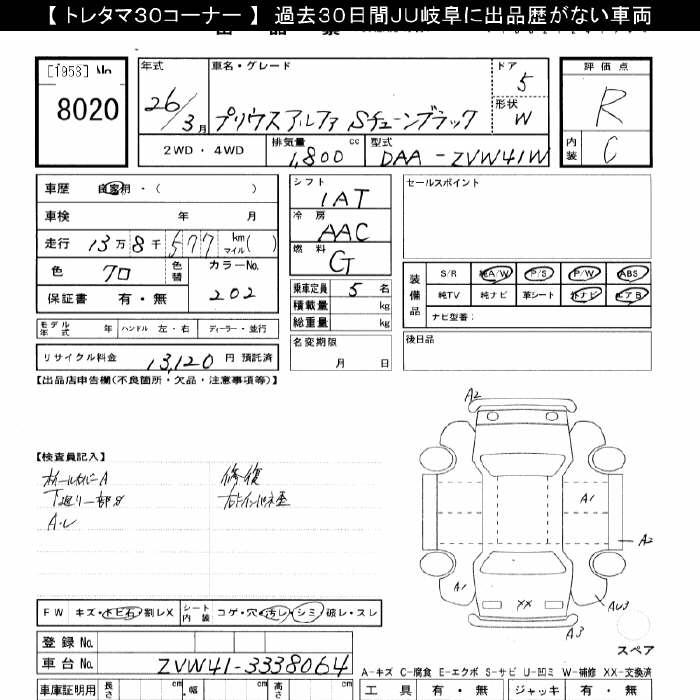 【 トレタマ30コーナー 】 過去30日間JU岐阜に出品歴がない車両
[1953] No
8020
年式
26/3月
車名・グレード
プリウスアルファ Sチューンブラック
ドア
5
形状
W
評価点
R
内装
C
2WD ・ 4WD
排気量
1,800 cc
型式
DAA-ZVW41W
車歴 自家用・( )
車検 年 月
走行 13万8千577 km マイル( )
色 クロ
色替
カラーNo.
202
保証書 有・無
シフト
IAT
冷房
AAC
燃料
G
乗車定員 5 名
積載量 kg
総重量 kg
名変期限
月 日
セールスポイント
装備品
S/R 純A/W P/S P/W ABS
純TV 純ナビ 革シート 外ナビ エアB
ナビ型番:
後日品
モデル年式 年 ハンドル 左・右 ディーラー・並行
リサイクル料金 13,120 円 預託済
【出品店申告欄(不良箇所・欠品・注意事項等)】
【検査員記入】
ホイールカバーA
下廻り一部サ
修復
A2
A1
A2
A1
XX
AU3
A3
スペア
FW キズ・トビ石・割レX シート内装 コゲ・穴・汚レ・シミ・破レ・スレ
登録 No.
車台 No. ZVW41-3338064
A-キズ C-腐食 E-エクボ S-サビ U-凹ミ W-補修 XX-交換済
車庫証明用 長さ cm 幅 cm 高さ cm
工具 有・無 ジャッキ 有・無